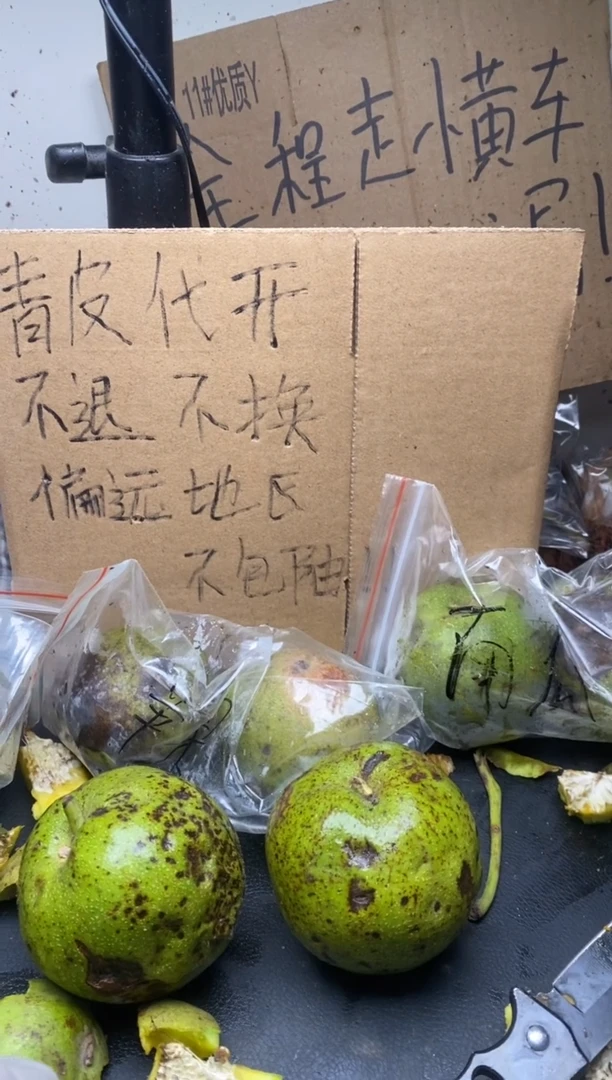 11#优质Y
全程走小黄车
青皮代开
不退 不换
偏远地区
不包邮